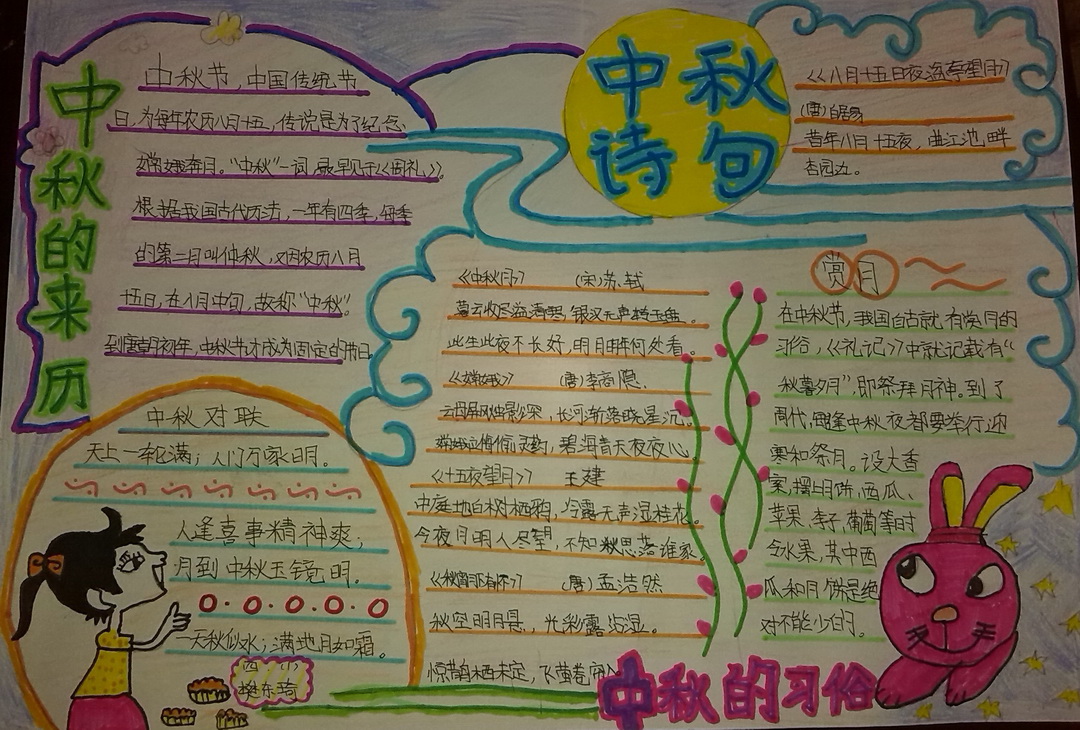 中秋的来历
中秋节,中国传统节
日,为每年农历八月十五,传说是为了纪念
嫦娥奔月。“中秋”一词,最早见于《周礼》。
根据我国古代历法,一年有四季,每季
的第二月叫仲秋,又因农历八月
十五日,在八月中旬,故称“中秋”。
到唐朝初年,中秋节才成为固定的节日。
中秋对联
天上一轮满;人间万家明。
人逢喜事精神爽;
月到中秋玉镜明。
一天秋似水;满地月如霜。
四(八)
樊东琦
中秋
诗句
《八月十五日夜湓亭望月》
(唐)白居易
昔年八月十五夜,曲江池畔
杏园边。
《中秋月》 (宋)苏轼
暮云收尽溢清寒,银汉无声转玉盘。
此生此夜不长好,明月明年何处看。
《嫦娥》 (唐)李商隐.
云母屏风烛影深,长河渐落晓星沉。
嫦娥应悔偷灵药,碧海青天夜夜心。
《十五夜望月》 王建
中庭地白树栖鸦,冷露无声湿桂花。
今夜月明人尽望,不知秋思落谁家。
(唐)孟浩然
秋空明月悬,光彩露沾湿。
惊鹊栖未定,飞萤卷帘入
赏月
在中秋节,我国自古就有赏月的
习俗,《礼记》中就记载有“
秋暮夕月”,即祭拜月神。到了
周代,每逢中秋夜都要举行迎
寒和祭月。设大香
案,摆上月饼、西瓜、
苹果、李子、葡萄等时
令水果,其中西
瓜和月饼是绝
对不能少的。
中秋的习俗